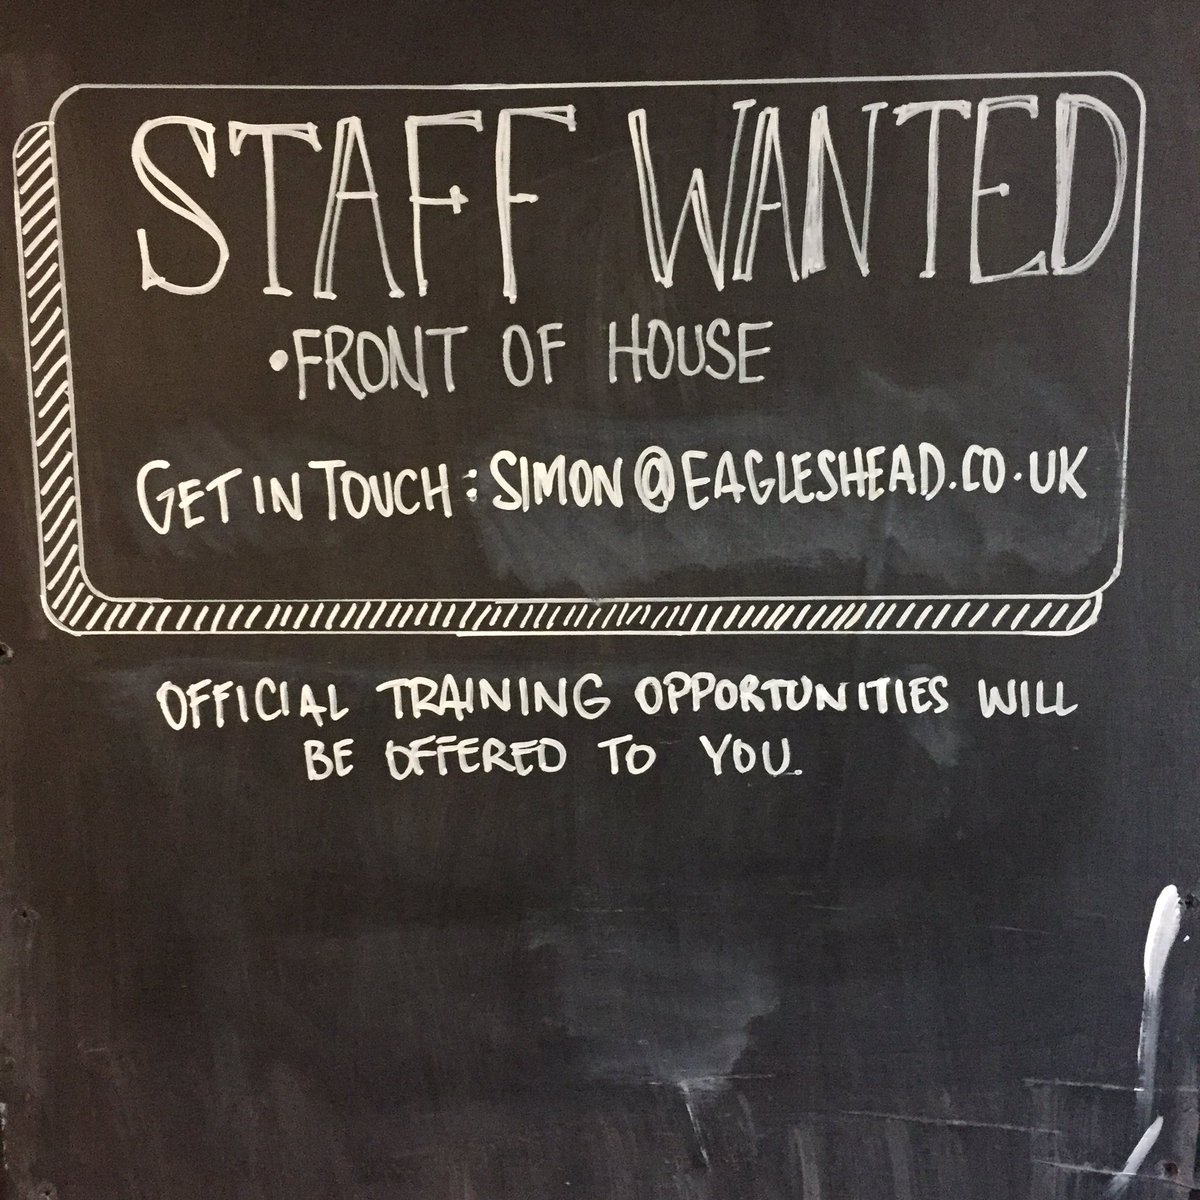 STAFF WANTED
•FRONT OF HOUSE
GET IN TOUCH: SIMON@EAGLESHEAD.CO.UK
OFFICIAL TRAINING OPPORTUNITIES WILL
BE OFFERED TO YOU.